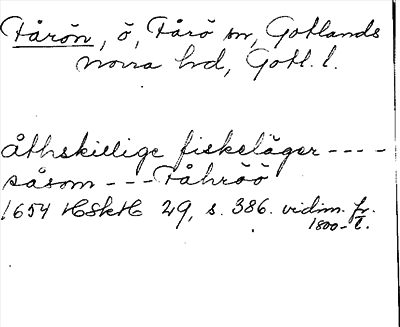 Fårön, ö, Fårö sn, Gotlands
norra hd, Gotl. l.
åthskillige fiskeläger - - - -
såsom - - - Fåhröö
1654 HSkH 29, s. 386. vidim. fr.
1800-t.